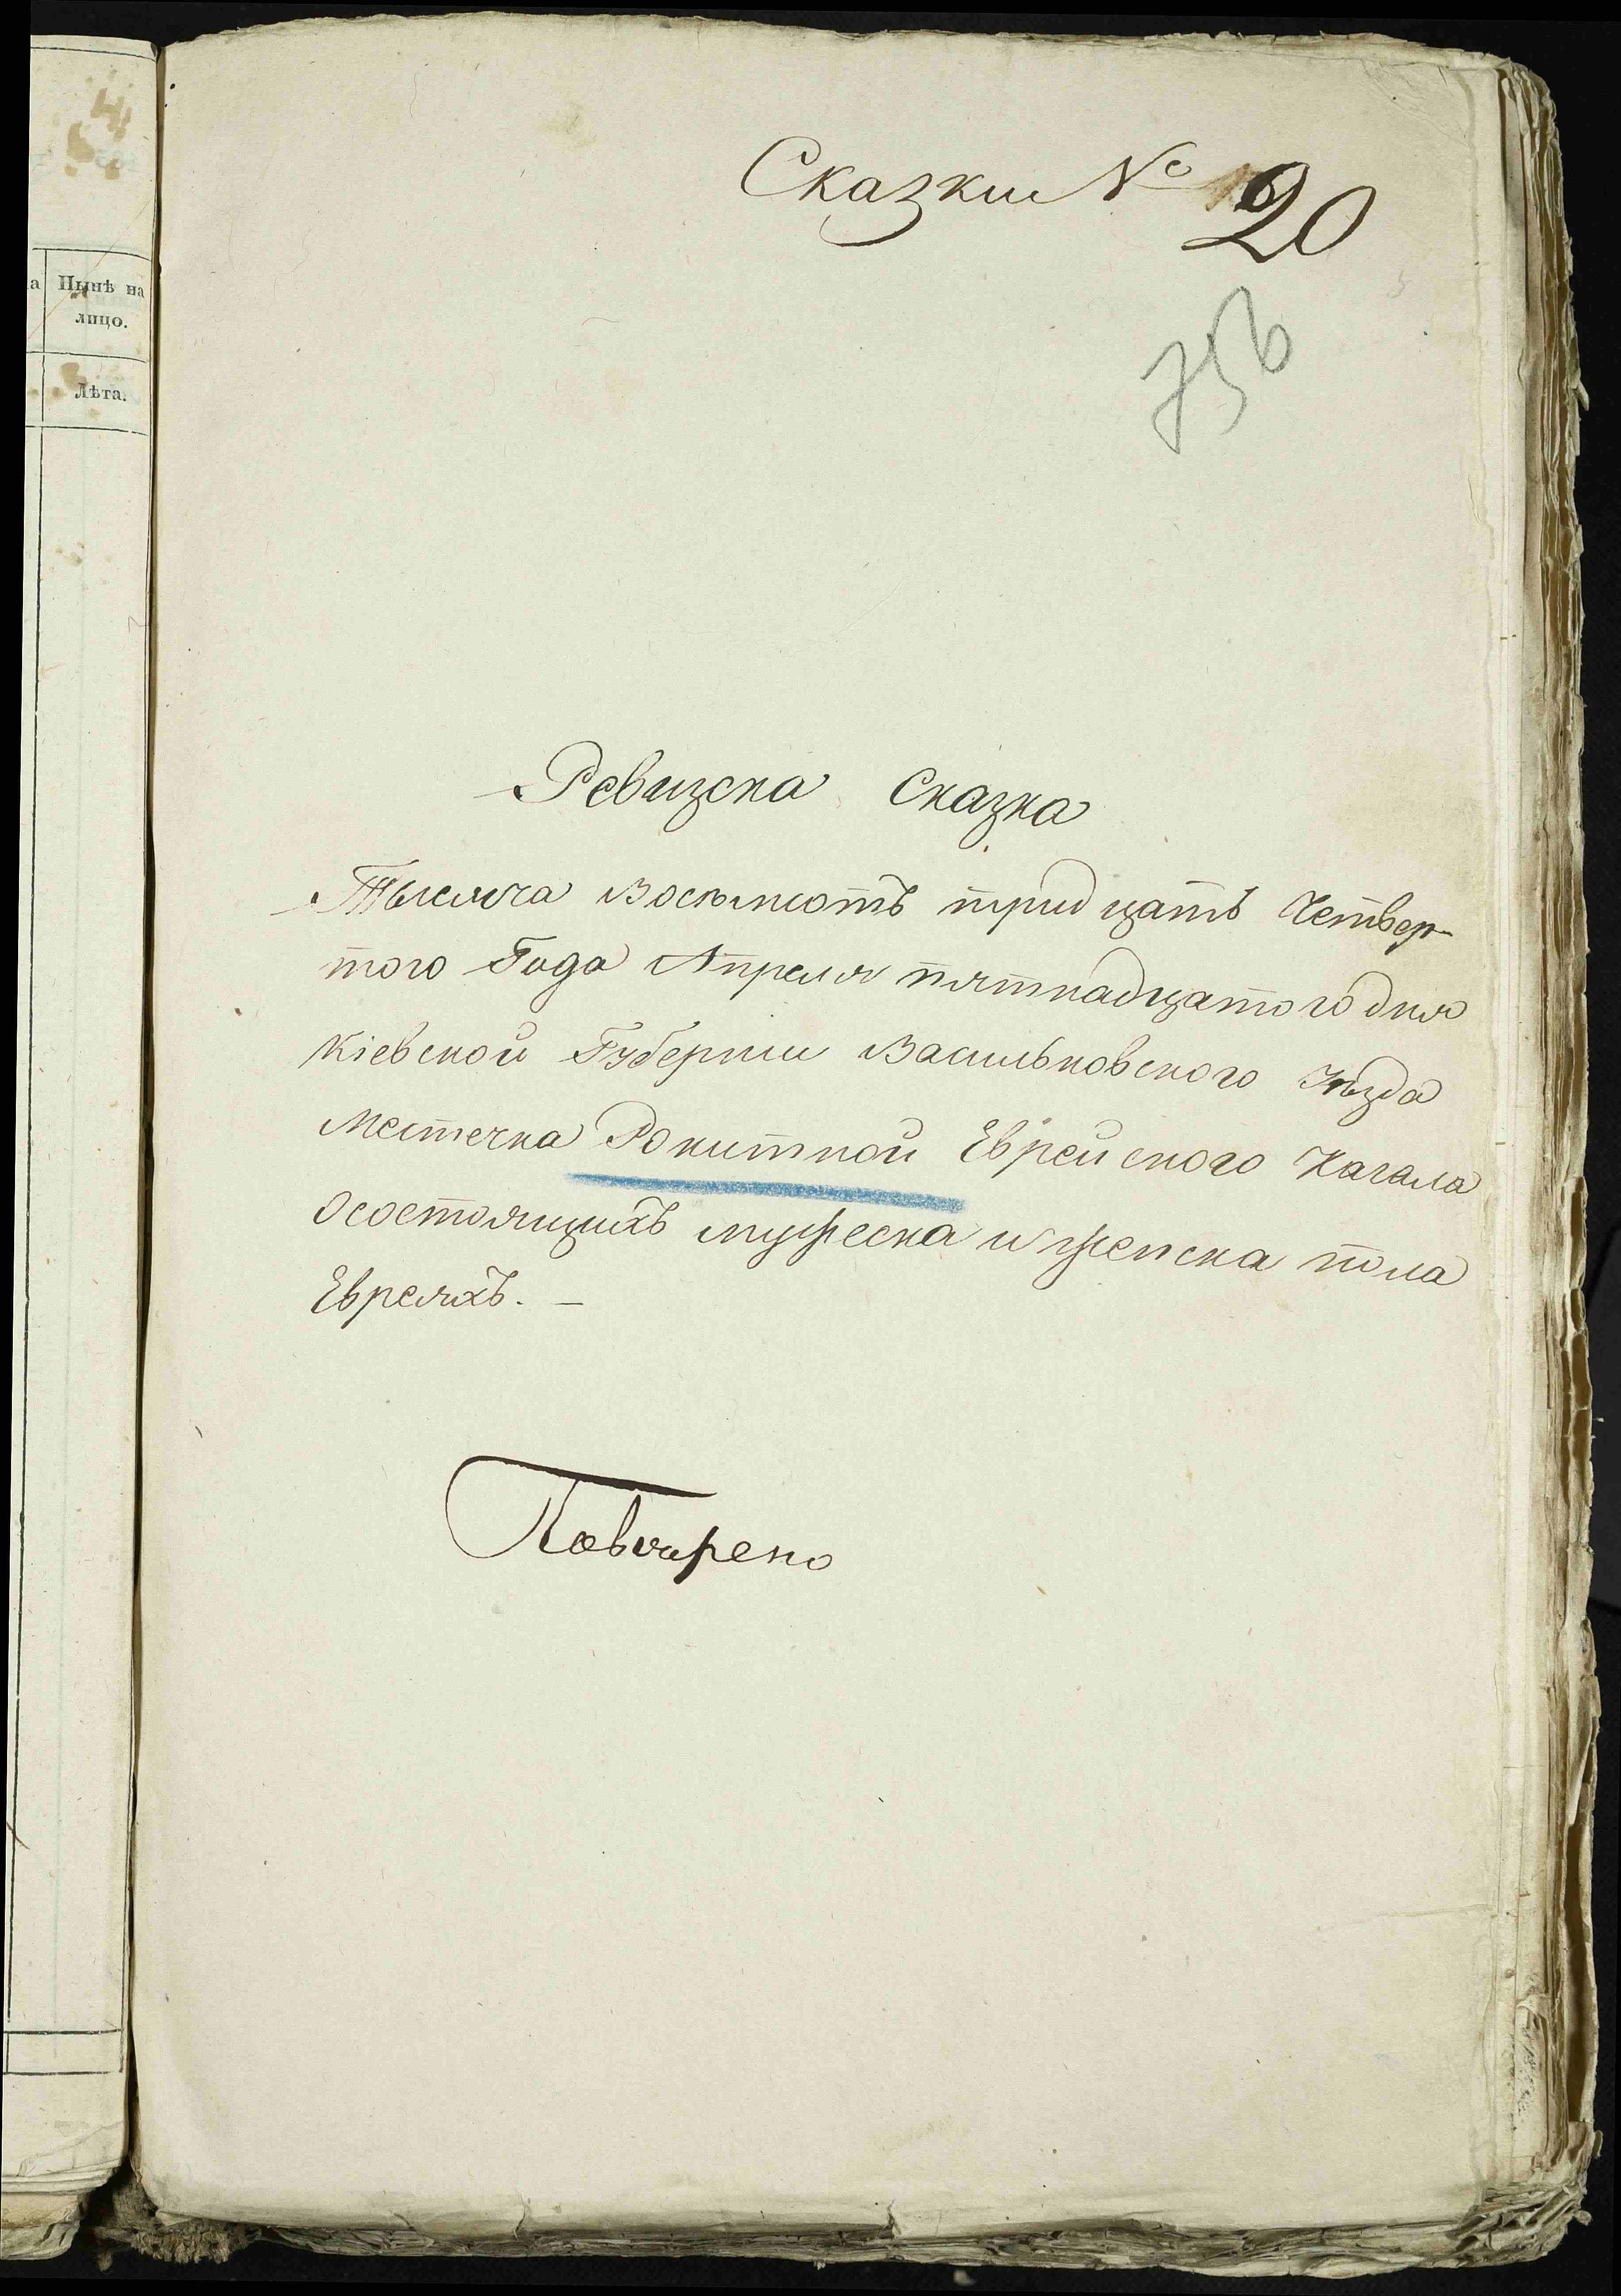 а Нынѣ на
лицо.
Лѣта.
Сказки № 20
356
Ревизска Сказка
Тысяча Восемьсотъ тридцать Четвер-
того Года Апреля пятнадцатого дня
Кіевской Губерніи Васильковского Уезда
Местечка Рокитной Еврейского Кагала
Осостоящихъ мужеска и женска пола
Евреяхъ. —